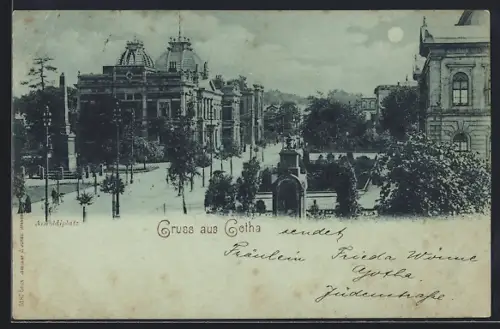 Arnoldiplatz
Gruss aus Gotha
sendet
Fräulein Frieda
Gotha.
Jüdenstraße.